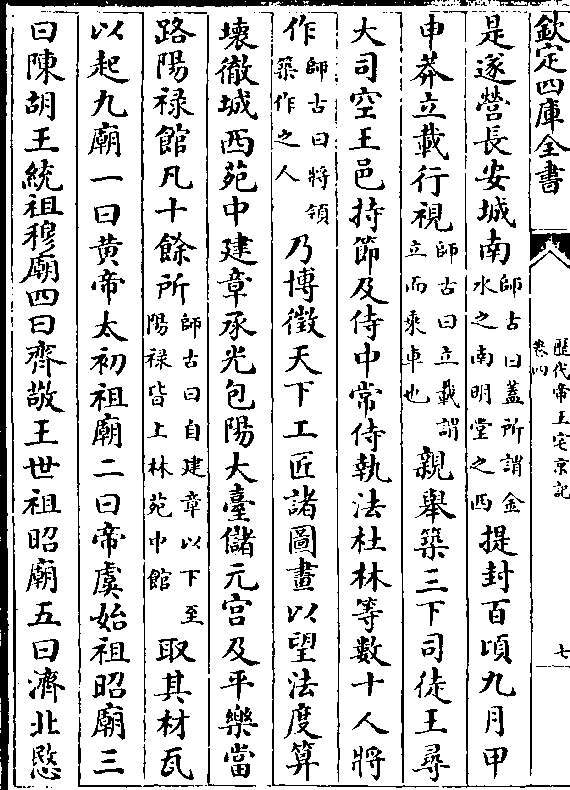 欽定四庫全書
歴代帝王宅京記
卷四
七
是遂營長安城南師古曰蓋所謂金水之南明堂之西提封百頃九月甲
申莽立載行視師古曰立載謂立而乘車也親舉築三下司徒王尋
大司空王邑持節及侍中常侍執法杜林等數十人將
作師古曰將領築作之人乃博徵天下工匠諸圖畫以望法度算
壞徹城西苑中建章承光包陽大臺儲元宫及平樂當
路陽禄館凡十餘所師古曰自建章以下至陽禄皆上林苑中館取其材瓦
以起九廟一曰黄帝太初祖廟二曰帝虞始祖昭廟三
曰陳胡王統祖穆廟四曰齊敬王世祖昭廟五曰濟北愍